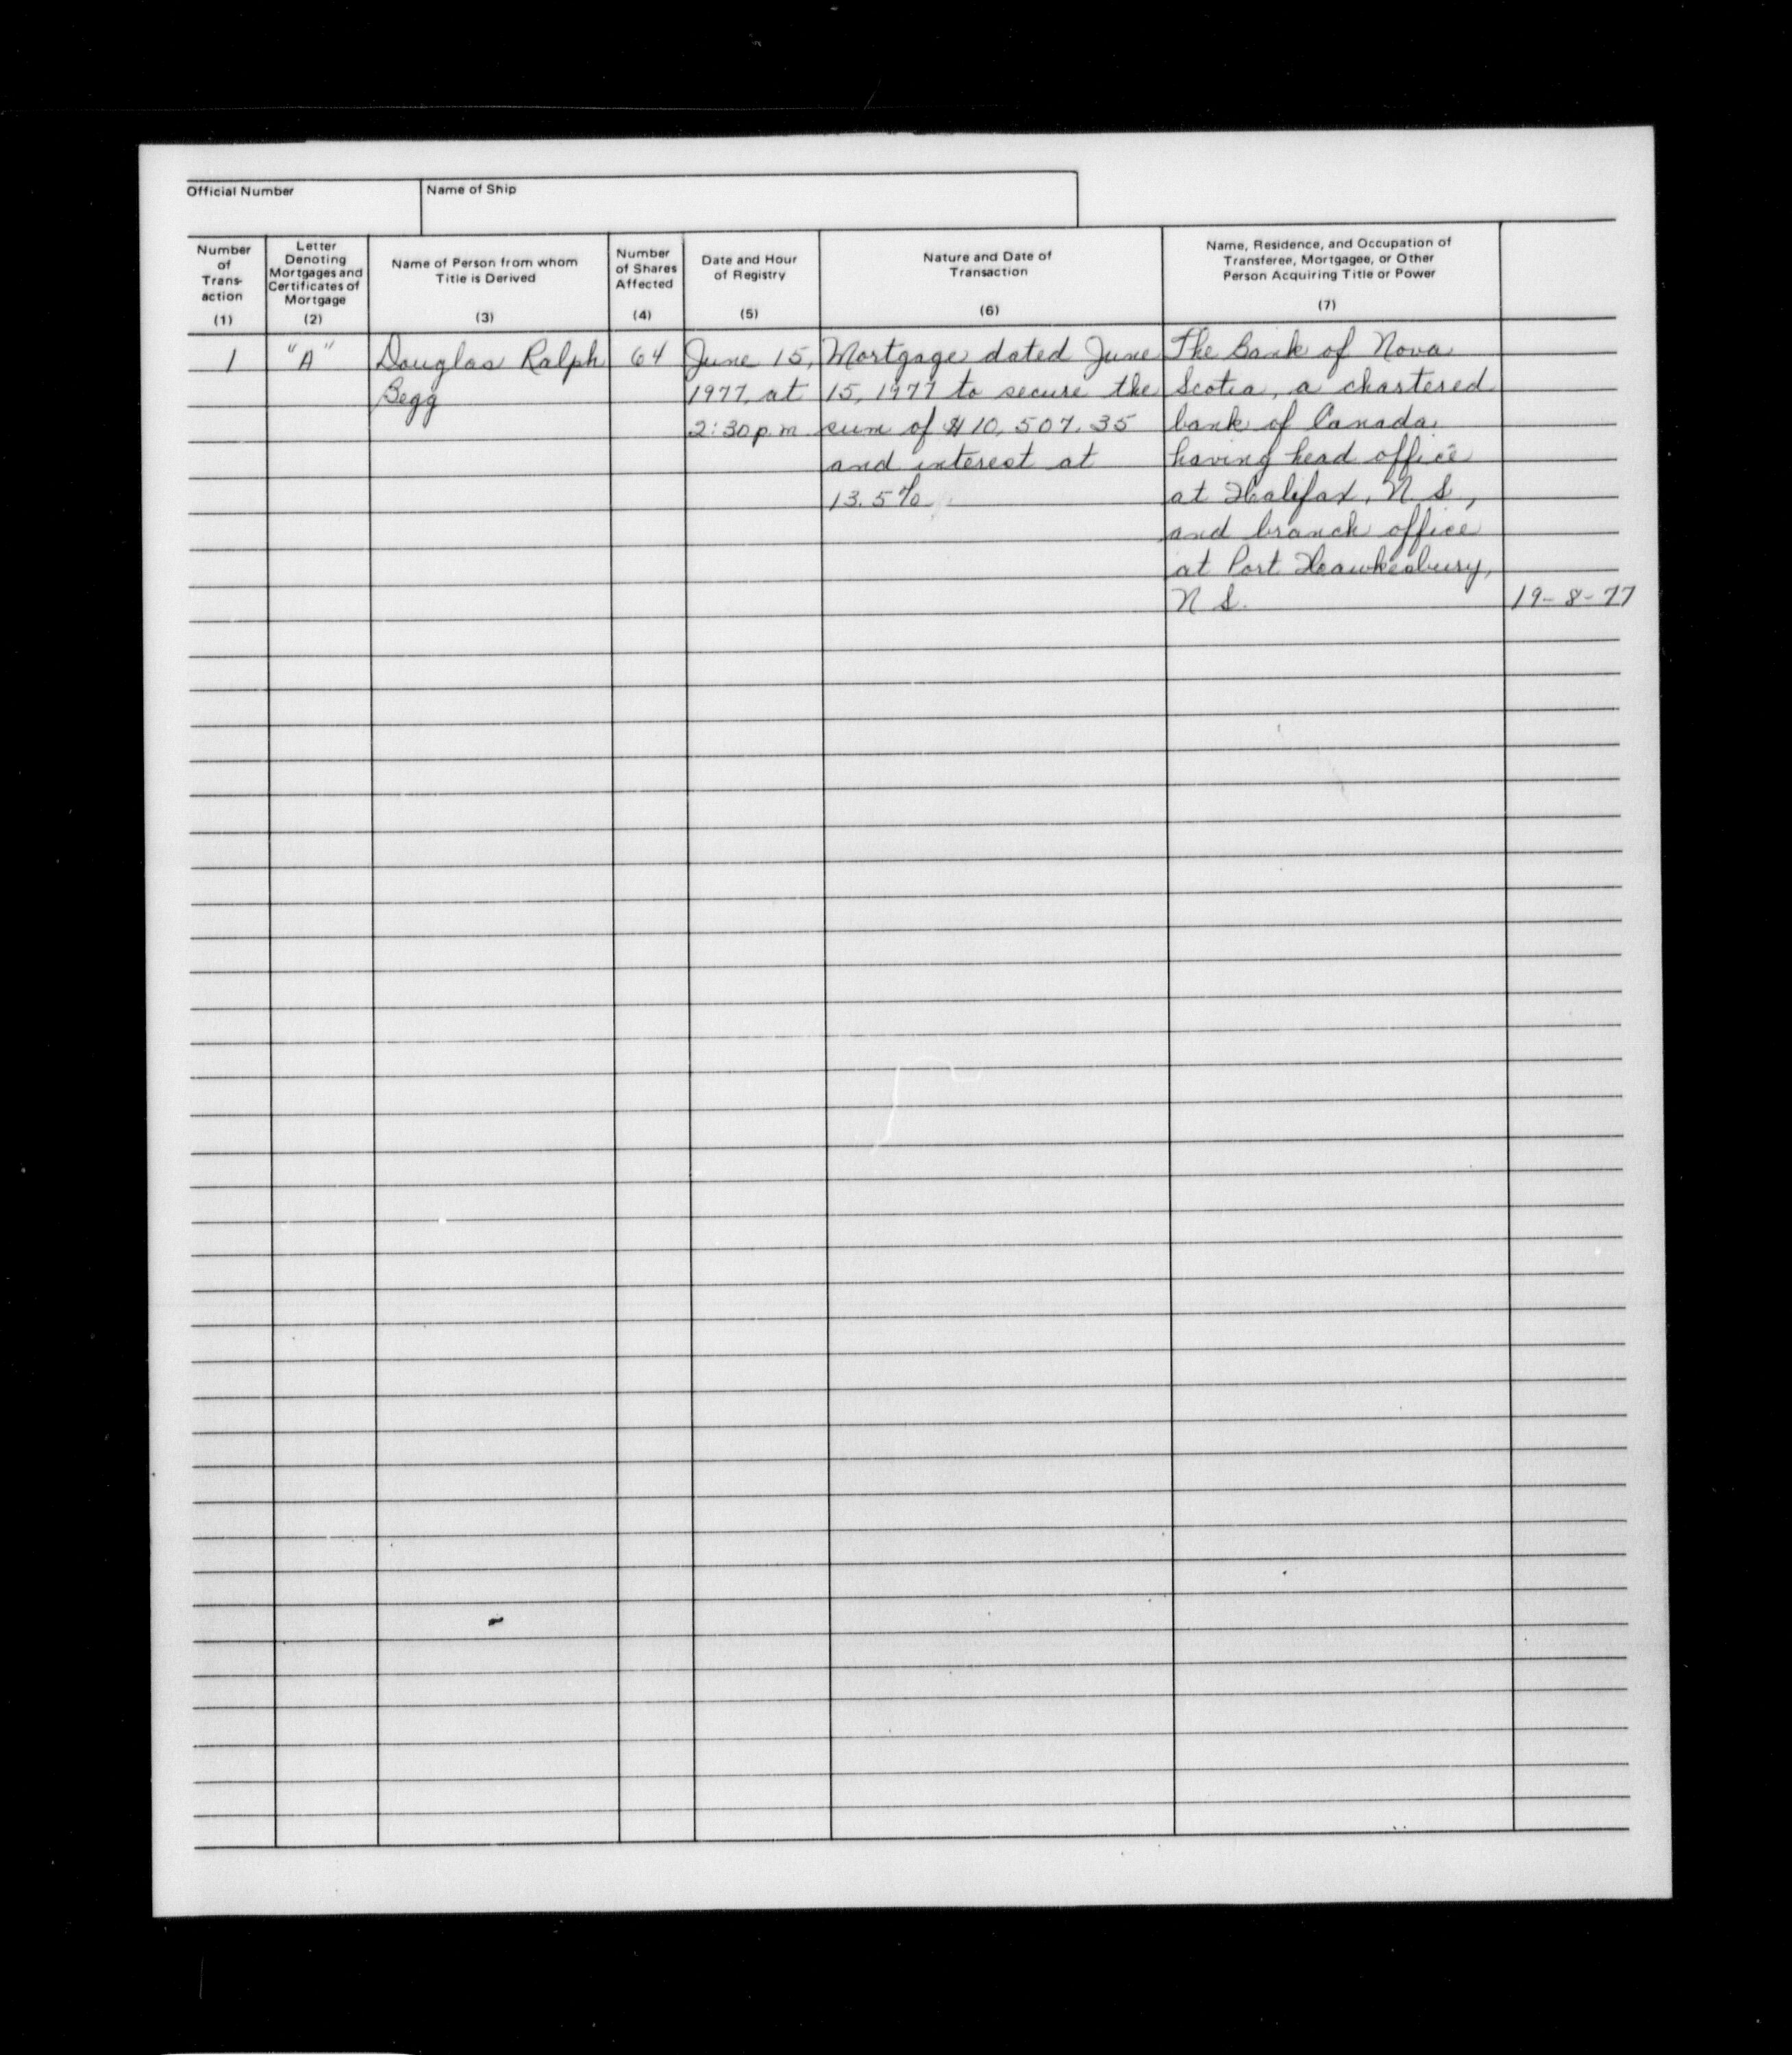 Official Number
Name of Ship
Number of Trans-action (1)
Letter Denoting Mortgages and Certificates of Mortgage (2)
Name of Person from whom Title is Derived (3)
Number of Shares Affected (4)
Date and Hour of Registry (5)
Nature and Date of Transaction (6)
Name, Residence, and Occupation of Transferee, Mortgagee, or Other Person Acquiring Title or Power (7)
1 "A" Douglas Ralph 64 June 15, Mortgage dated June The Bank of Nova
Begg 1977, at 15, 1977 to secure the Scotia, a chartered
2:30 p.m. sum of $10,507.35 bank of Canada
and interest at having head office
13.5% at Halifax, N.S.,
and branch office
at Port Hawkesbury,
N.S. 19-8-77